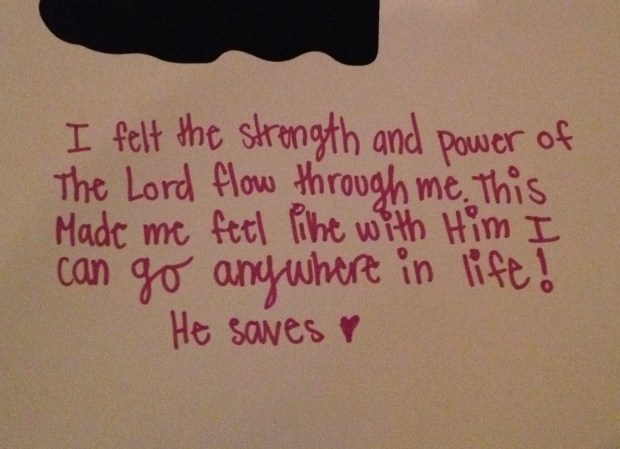 I felt the strength and power of
The Lord flow through me. This
Made me feel like with Him I
can go anywhere in life!
He saves ♥